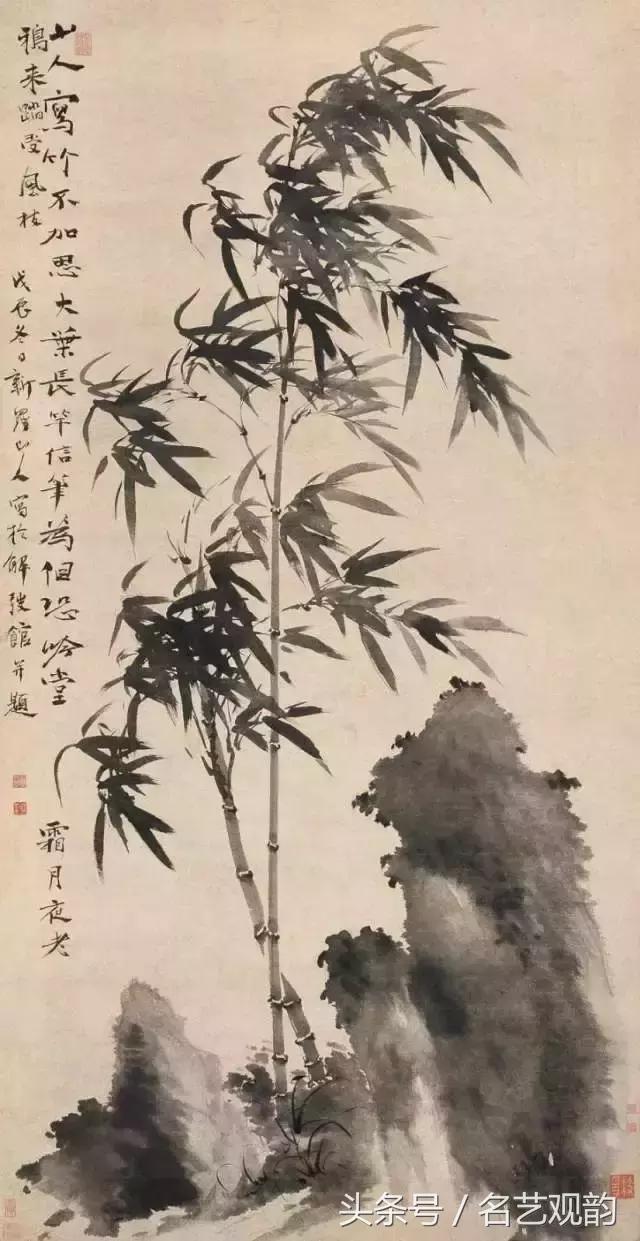 山人寫竹不加思大葉長竿信筆為但恐吟堂霜月夜老
鴉来踏受風枝 戊辰冬日新羅山人寫於解弢館并題
头条号 / 名艺观韵